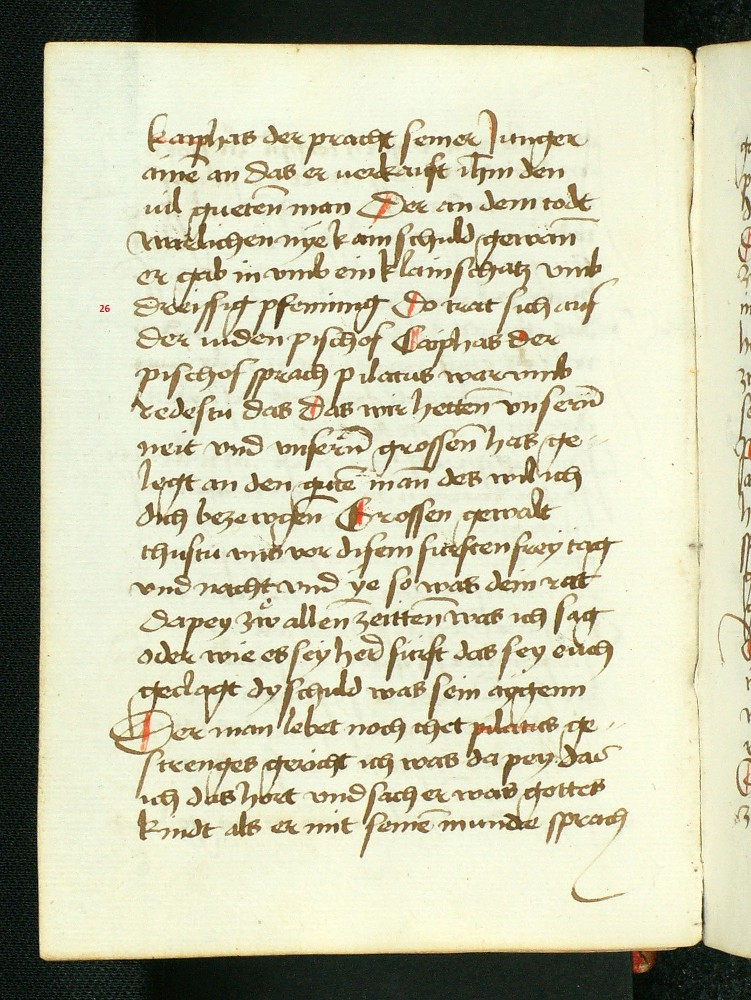 kaiphas der pracht seiner Junger
ainē an das er verkauft ihm den
vil gueten̄ man Der an dem todt
warlichen nye kain schuld gewan̄
er gab in vmb ein klain schatz vmb
26 dreissig pfenning Do trat sich auf
der iuden pischof Caiphas der
pischof sprach pilatus warumb
redestu das Das wir hetten̄ vnsern̄
neit vnd vnsern̄ grossen̄ has ge-
legt an den gutē man̄ des wil ich
dich bezewgen̄ Grossen gewalt
thustu vns vor disem fursten frey tag
vnd nacht vnd ye so was dein rat
dapey zů allen̄ zeitten̄ was ich sag
oder wie es sey her̄ furst das sey euch
geclagt dy schuld was sein aygenn
Der man lebet noch thet pilatus ge-
strenges gericht ich was da pey das
ich das hort vnd sach er was gottes
kindt als er mit seinē munde sprach